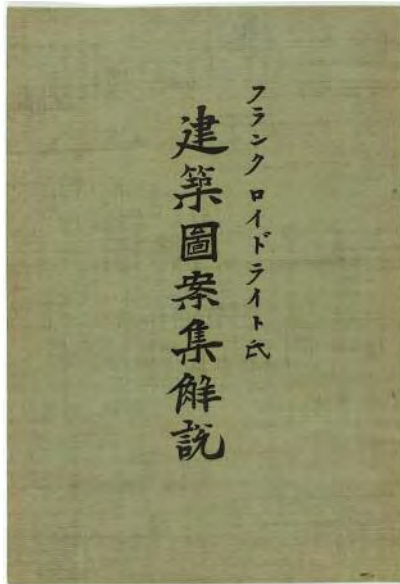 フランク ロイドライト氏
建築圖案集解説